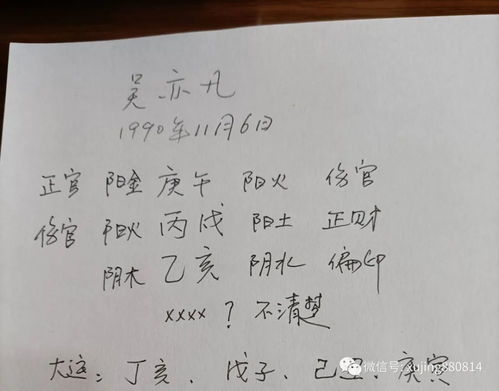 吴亦凡
1990年11月6日
正官 阳金 庚午 阳火 伤官
伤官 阳火 丙戌 阳土 正财
阴木 乙亥 阴水 偏印
xxxx ? 不清楚
大运: 丁亥、戊子、己丑 庚寅
微信号: xujing880814